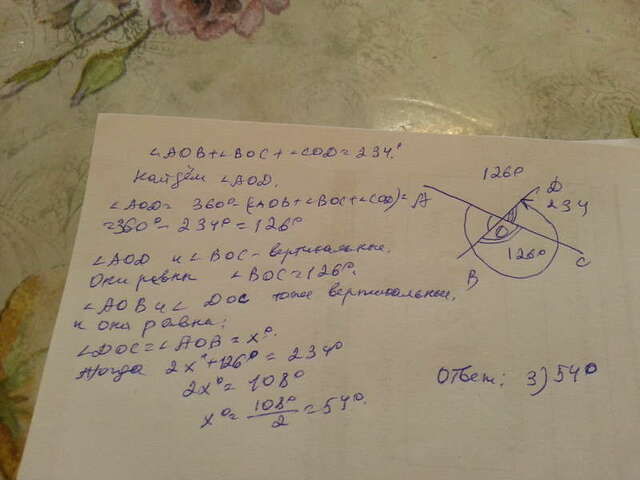 ∠AOB+∠BOC+∠COD=234°.
Найдём ∠AOD.
∠AOD= 360°-(∠AOB+∠BOC+∠COD)=
=360°-234°=126°
∠AOD и ∠BOC-вертикальные.
Они равны ∠BOC=126°.
∠AOB и ∠DOC тоже вертикальные,
и они равны:
∠DOC=∠AOB=x°.
Тогда 2x°+126°=234°
2x°=108°
x°=108°/2=54°.
126°
A
D
234
O
126°
B
C
Ответ: 3)54°